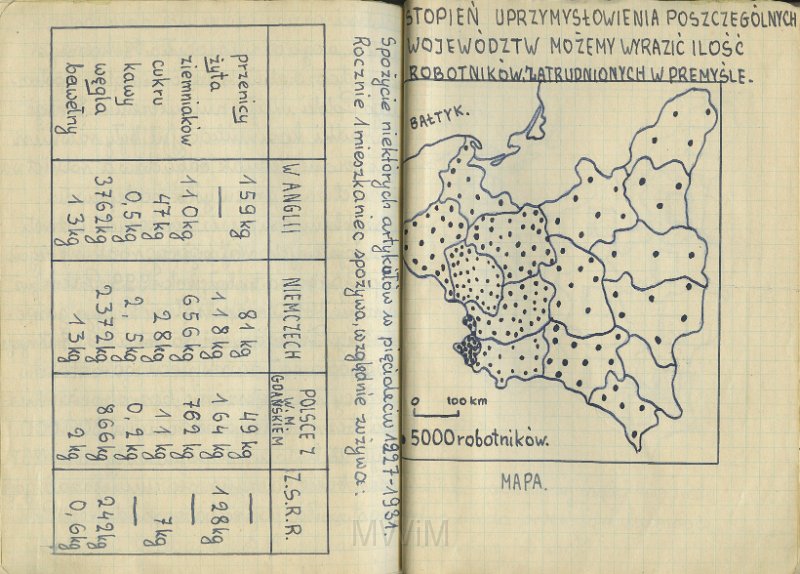 Spożycie niektórych artykułów w pięcioleciu 1927-1931.
Rocznie 1 mieszkaniec spożywa, względnie zużywa:
W ANGLII NIEMCZECH POLSCE Z W.M. GDAŃSKIEM Z.S.R.R.
przenicy 159kg 81kg 49kg —
żyta — 118kg 164kg 128kg
ziemniaków 110kg 656kg 762kg —
cukru 47kg 28kg 11kg 7kg
kawy 0,5kg 2,5kg 0,2kg —
węgla 3762kg 2372kg 866kg 242kg
bawełny 13kg 13kg 2kg 0,6kg
STOPIEŃ UPRZYMYSŁOWIENIA POSZCZEGÓLNYCH
WOJEWÓDZTW MOŻEMY WYRAZIĆ ILOŚĆ
ROBOTNIKÓW, ZATRUDNIONYCH W PREMYŚLE.
BAŁTYK.
0 100 km
5000 robotników.
MAPA.
MWiM